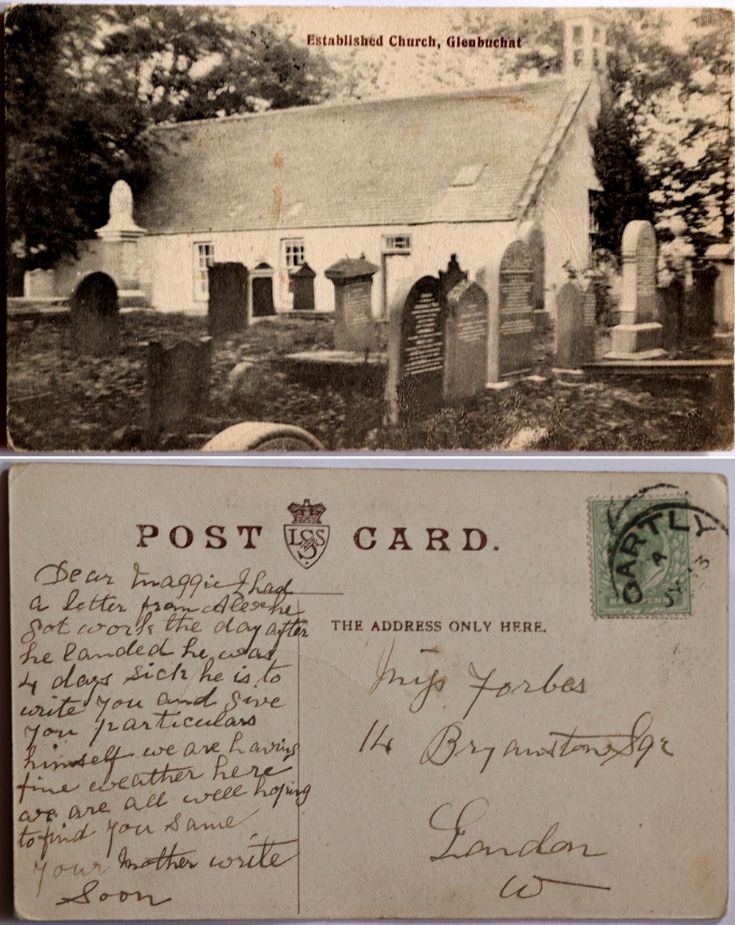 Established Church, Glenbuchat
POST CARD.
LSS
GARTLY
A
JY 13
HALFPENNY
THE ADDRESS ONLY HERE.
Dear Maggie I had
a letter from Alex he
got work the day after
he landed he was
4 days sick he is to
write you and give
you particulars
himself we are having
fine weather here
we are all well hoping
to find you same
your Mother write
Soon
Miss Forbes
14 Bryanstone Sqr
London
W